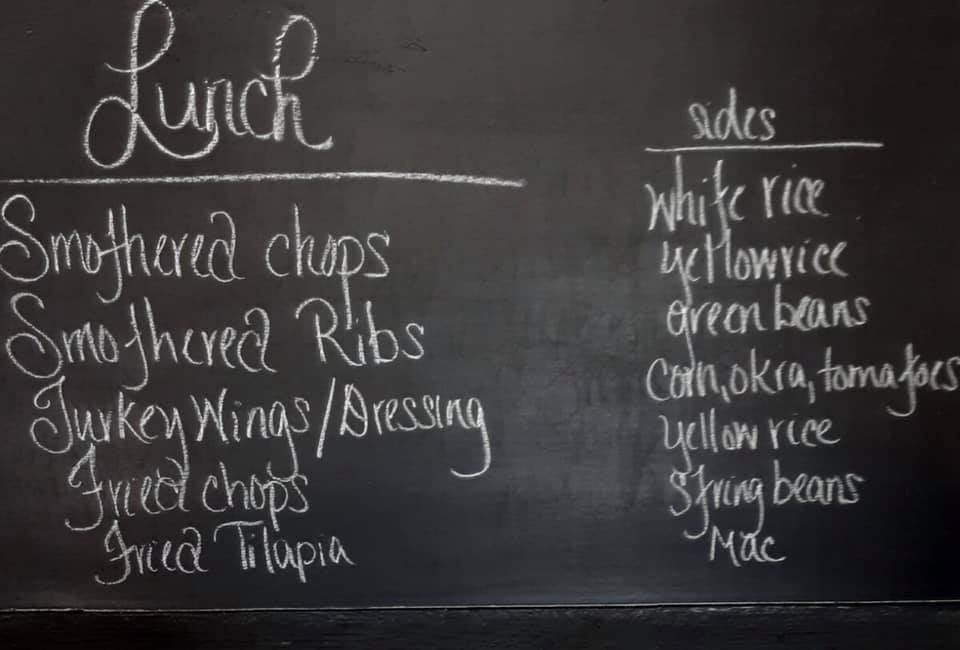 Lunch
Smothered chops
Smothered Ribs
Turkey Wings/Dressing
Fried chops
Fried Tilapia
sides
white rice
yellow rice
green beans
corn, okra, tomatoes
yellow rice
string beans
Mac